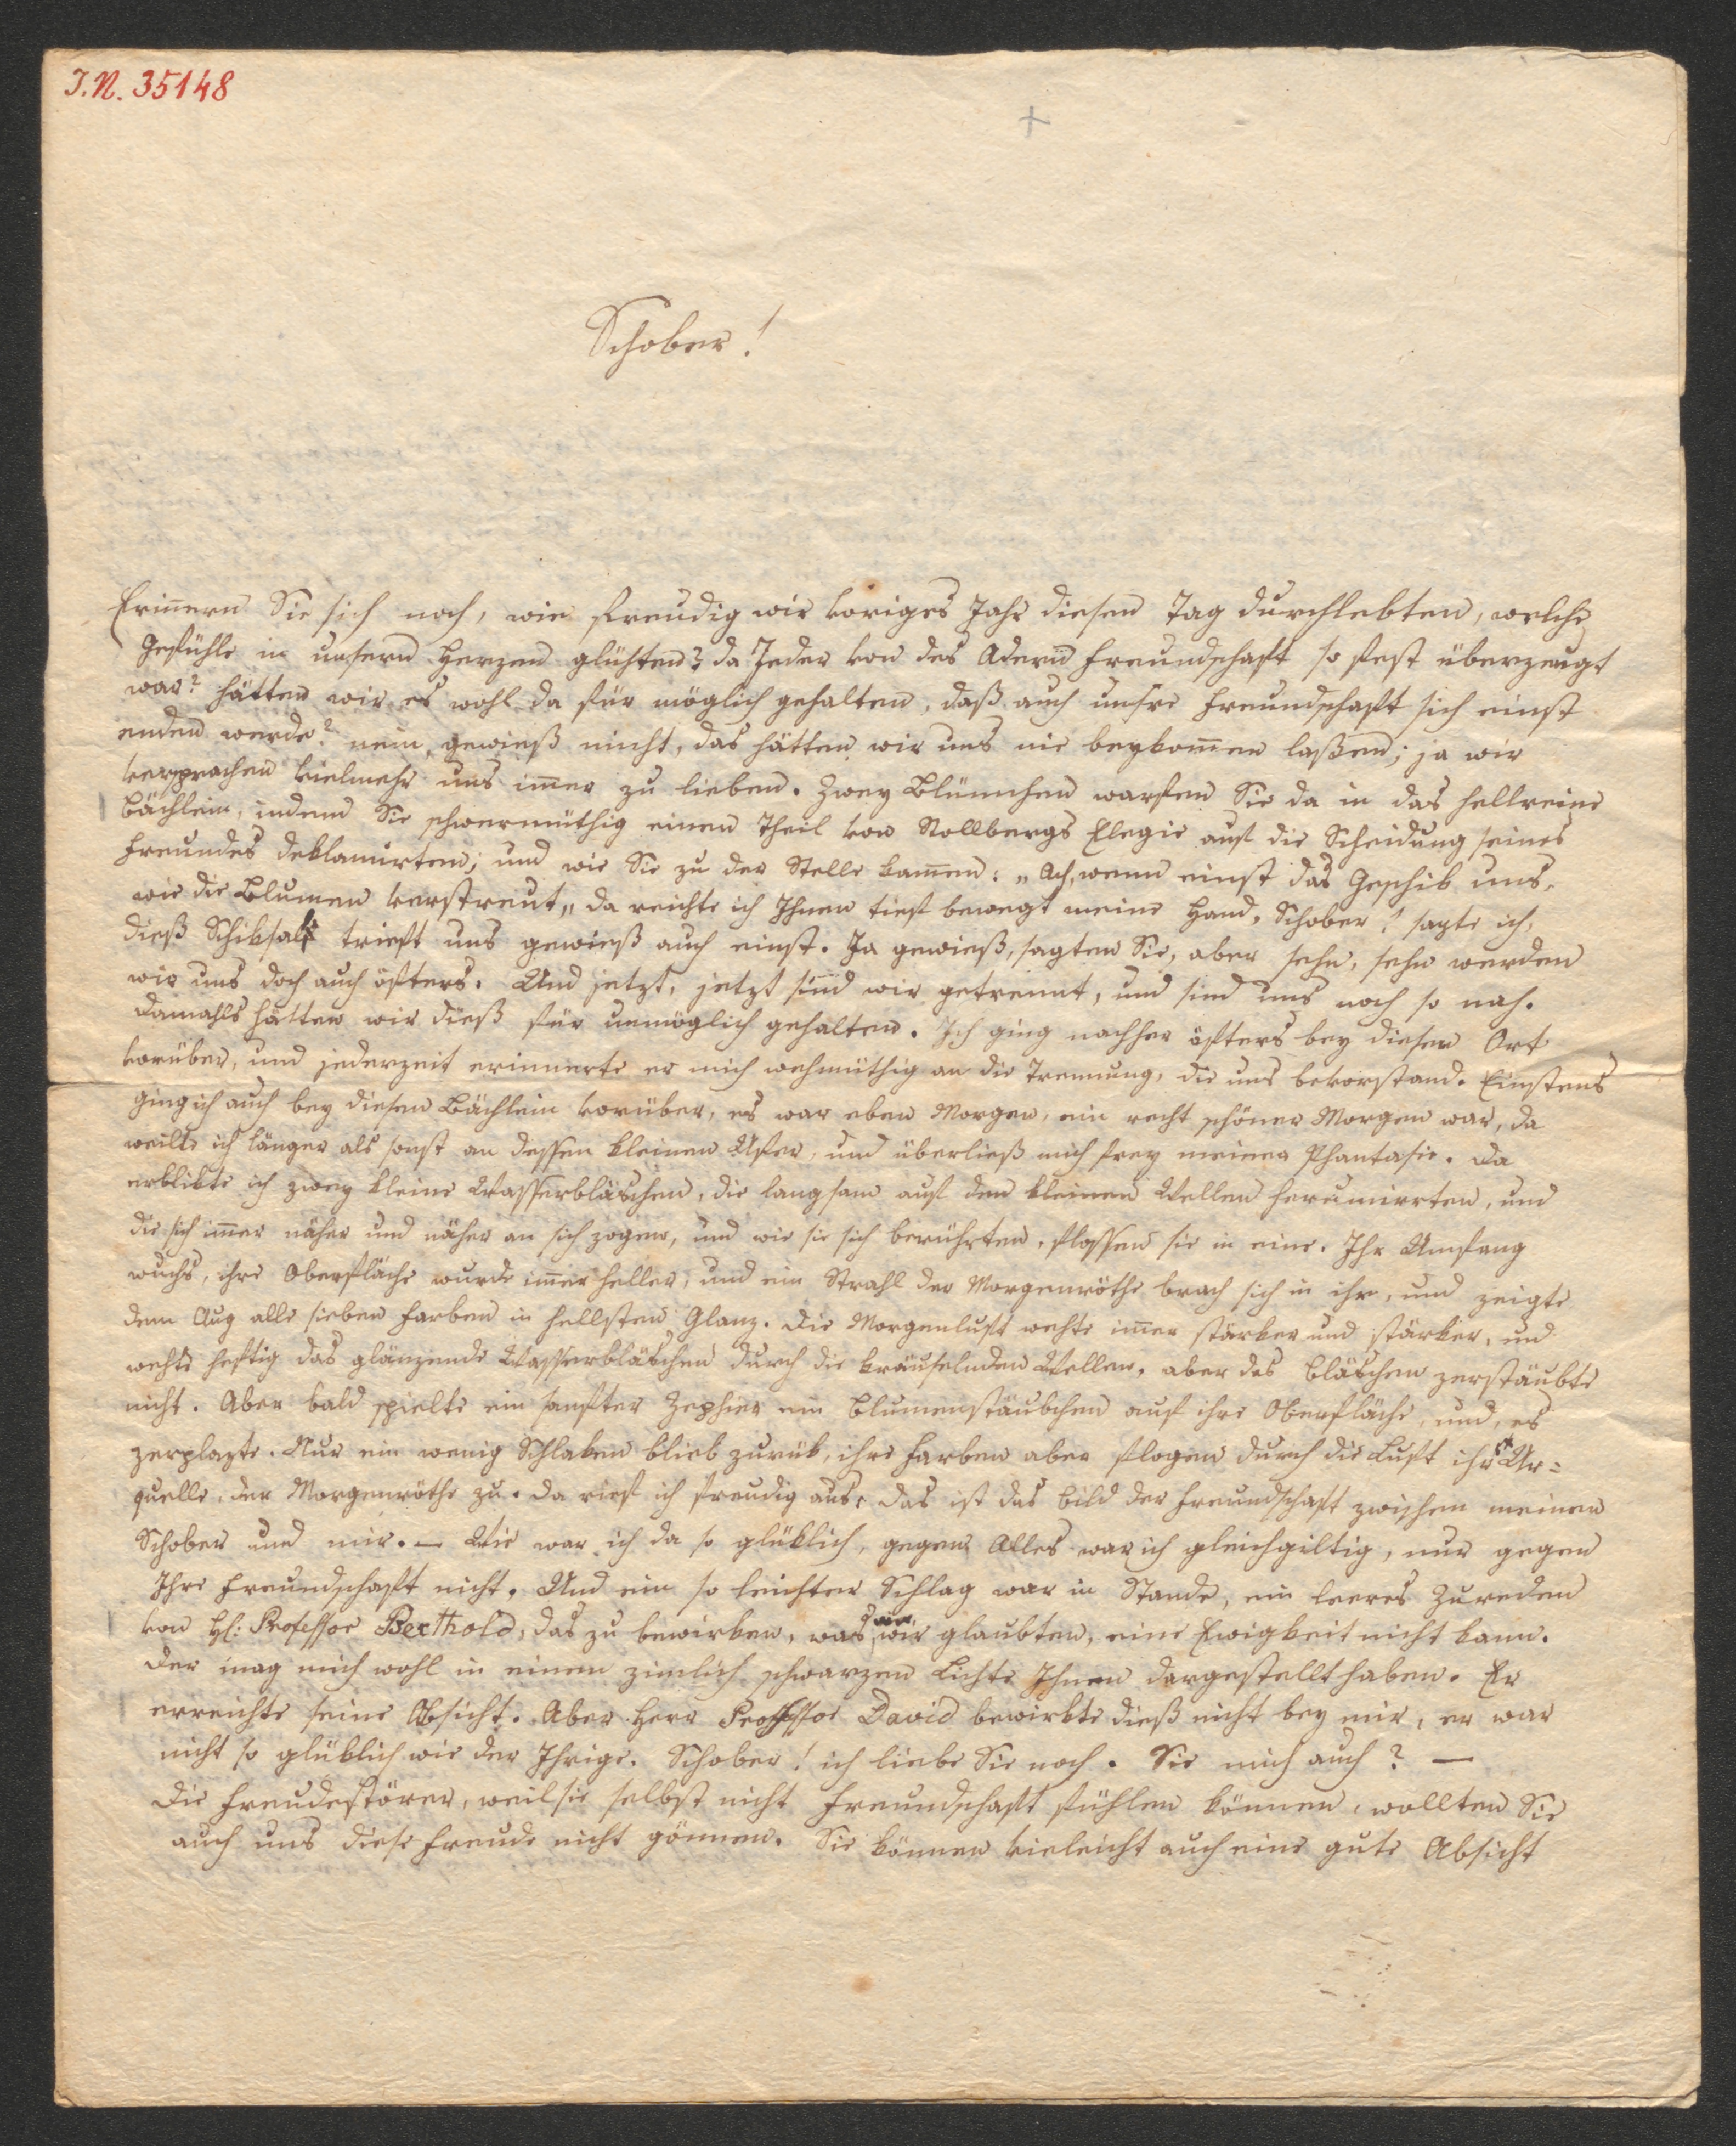 I.N. 35148
Schober!
Erinnern Sie sich noch, wie freudig wir voriges Jahr diesen Tag durchlebten, welche
Gefühle in unsern Herzen glühten? da Jeder von des Adern Freundschaft so fest überzeugt
war? hätten wir es wohl da für möglich gehalten, daß auch unsre Freundschaft sich einst
enden werde? nein, gewieß nicht, das hätten wir uns nie beykom̅en laßen; ja wir
versprachen vielmehr uns im̅er zu lieben. Zwey Blümchen warfen Sie da in das hellreine
Bächlein, indem Sie schwermüthig einen Theil von Stollbergs Elegie auf die Scheidung seines
Freundes deklamirten; und wie Sie zu der Stelle kam̅en: „Ach, wenn einst das Geschik uns,
wie die Blumen verstreut„ da reichte ich Ihnen tief bewegt meine Hand, Schober! sagte ich,
dieß Schiksal trieft uns gewieß auch einst. Ja gewieß, sagten Sie, aber sehn, sehn werden
wir uns doch auch öfters. Und jetzt, jetzt sind wir getrennt, und sind uns noch so nah.
Damahls hätten wir dieß für unmöglich gehalten. Ich ging nachher öfters bey diesen Ort
vorüber, und jederzeit erinnerte er mich wehmüthig an die Trennung, die uns bevorstand. Einstens
ging ich auch bey diesen Bächlein vorüber, es war eben Morgen, ein recht schöner Morgen war, da
weilte ich länger als sonst an dessen kleinen Ufer, und überließ mich frey meiner Phantasie. Da
erblikte ich zwey kleine Wasserbläschen, die langsam auf den kleinen Wellen herumirrten, und
die sich im̅er näher und näher an sich zogen, und wie sie sich berührten, flossen sie in eine. Ihr Umfang
wuchs, ihre Oberfläche wurde im̅er heller, und ein Strahl der Morgenröthe brach sich in ihr, und zeigte
dem Aug alle sieben Farben in hellsten Glanz. Die Morgenluft wehte im̅er stärker und stärker, und
wehte heftig das glänzende Wasserbläschen durch die kräuselnden Wellen, aber das Bläschen zerstäubte
nicht. Aber bald spielte ein sanfter Zephier ein Blumenstäubchen auf ihre Oberfläche, und, es
zerplazte. Nur ein wenig Schlaken blieb zurük, ihre Farben aber flogen durch die Luft ihr Ur=
quelle, der Morgenröthe zu. Da rief ich freudig aus, das ist das Bild der Freundschaft zwischen meinen
Schober und mir. — Wie war ich da so glüklich, gegen Alles war ich gleichgiltig, nur gegen
Ihre Freundschaft nicht. Und ein so leichter Schlag war in Stande, ein leeres Zureden
von H: Professor Berthold, das zu bewirken, was wir glaubten, eine Ewigkeit nicht kann.
Der mag mich wohl in einem zimlich schwarzen Lichte Ihnen dargestellt haben. Er
erreichte seine Absicht. Aber Herr Professor David bewirkte dieß nicht bey mir, er war
nicht so glüklich wie der Ihrige. Schober! ich liebe Sie noch. Sie mich auch? —
Die Freudestörer, weil sie selbst nicht Freundschaft fühlen können, wollten Sie
auch uns diese Freude nicht gönnen. Sie können vieleicht auch eine gute Absicht